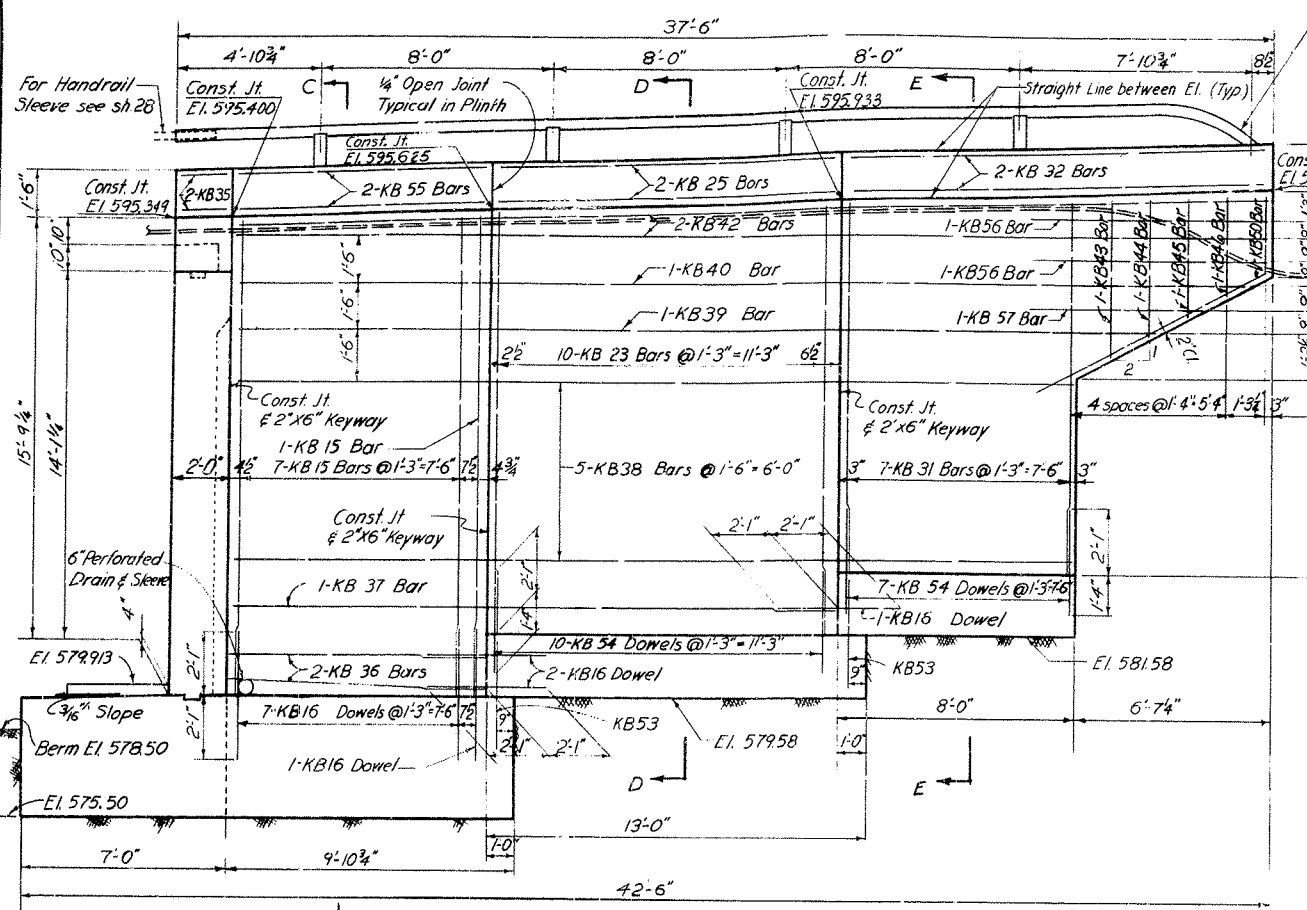 37'-6"
4'-10¾" 8'-0" 8'-0" 8'-0" 7'-10¾" 8½
For Handrail
Sleeve see sh.28
Const. Jt.
El. 595.400
C
¼" Open Joint
Typical in Plinth
D
Const. Jt.
El. 595.933
E
Straight Line between El. (Typ.)
Const. Jt.
El. 595.625
1'-6"
Const. Jt.
El. 595.349
2-KB35
2-KB 55 Bars
2-KB 25 Bars
2-KB 32 Bars
10" 10"
2-KB42 Bars
1-KB56 Bar
1'-6"
1-KB40 Bar
1-KB56 Bar
1'-6"
1-KB39 Bar
1-KB 57 Bar
1'-6"
1-KB43 Bar
1-KB44 Bar
1-KB45 Bar
1-KB46 Bar
1-KB50 Bar
2½" 10-KB 23 Bars @ 1'-3" = 11'-3" 6½"
1
2
Const. Jt.
& 2"X6" Keyway
Const. Jt.
& 2"X6" Keyway
4 spaces @ 1'-4"=5'4" 1'-3½" 3"
15'-9¼"
14'-1¼"
1-KB 15 Bar
2'-0" 4½" 7-KB 15 Bars @ 1'-3"=7'-6" 7½" 4¾"
5-KB38 Bars @ 1'-6" = 6'-0"
3" 7-KB 31 Bars @ 1'-3"= 7'-6" 3"
Const. Jt
& 2"X6" Keyway
2'-1" 2'-1"
2'-1"
6" Perforated
Drain & Sleeve
2'-1"
1-KB 37 Bar
7-KB 54 Dowels @1'-3=7'6
1'-4"
4"
1'-4"
1-KB16 Dowel
10-KB 54 Dowels @ 1'-3" = 11'-3"
El. 579.913
2'-1"
2-KB 36 Bars
2-KB16 Dowel
KB53
9"
El. 581.58
3/16" Slope
7-KB16 Dowels @1'-3"=7'-6" 7½
9"
KB53
8'-0" 6'-7¼"
Berm El. 578.50
2'-1"
2'-1" 2'-1"
El. 579.58
1'-0"
1-KB16 Dowel
D
E
El. 575.50
13'-0"
1'-0"
7'-0" 9'-10¾"
42'-6"